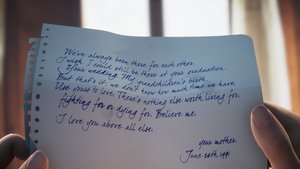 We've always been there for each other.
I wish I could still be there at your graduation.
Your wedding. My grandchildren's birth.
But that's it, we don't know how much time we have.
Use yours to love. There's nothing else worth living for.
Fighting for or dying for. Believe me.
I love you above all else.
your mother.
June 26th 1991